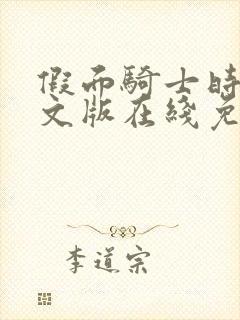 假而騎士時
文版在綫免
李道宗